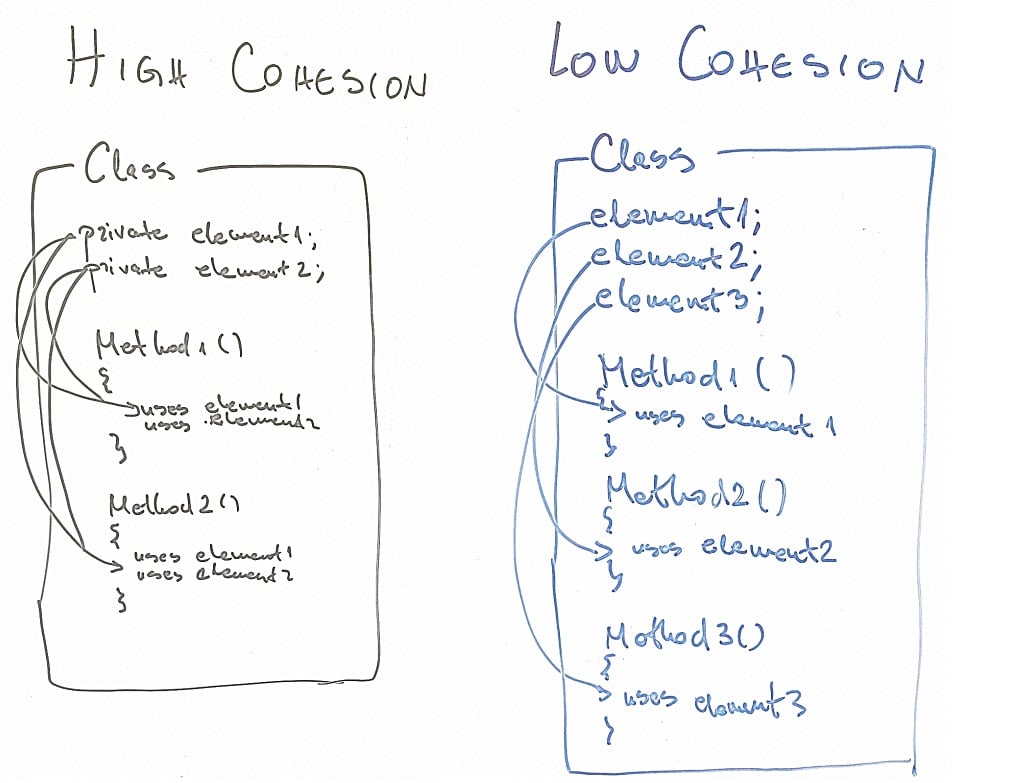 HIGH COHESION
Class
private element1;
private element2;
Method1()
{
uses element1
uses element2
}
Method2()
{
uses element1
uses element2
}
LOW COHESION
Class
element1;
element2;
element3;
Method1()
{
uses element1
}
Method2()
{
uses element2
}
Method3()
{
uses element3
}